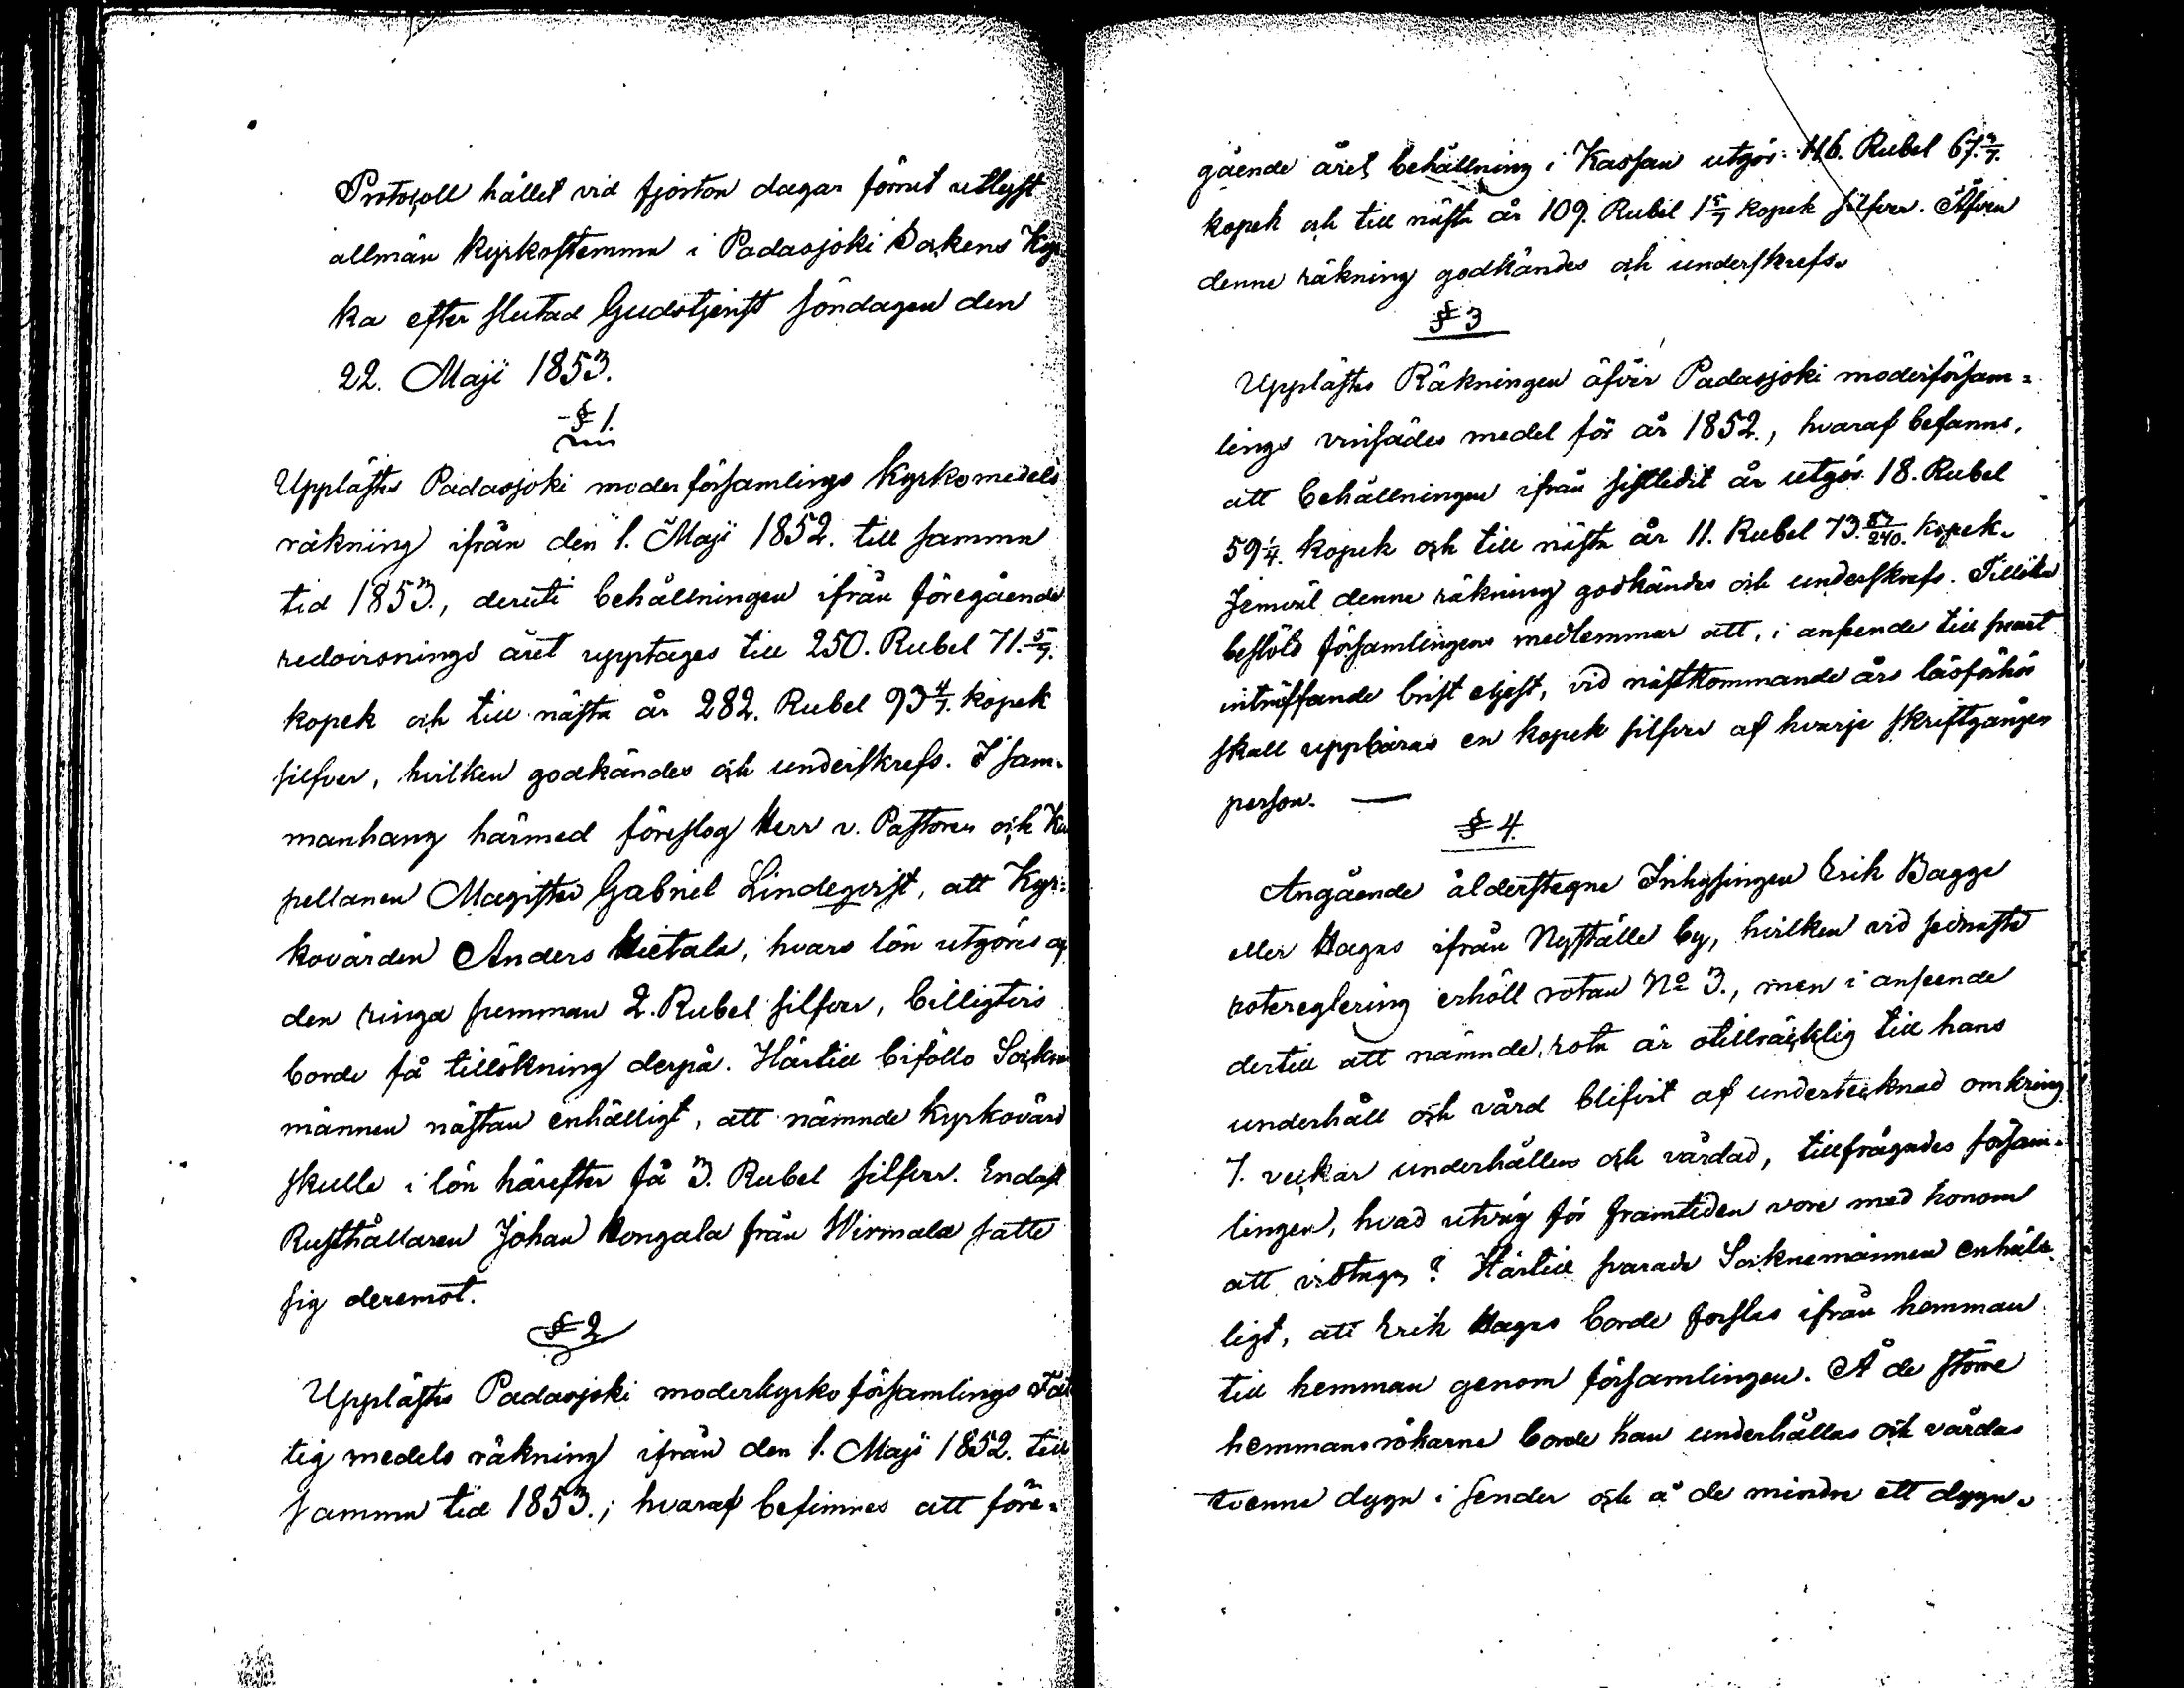 Protocoll hållet vid fjorton dagar förut utlyst
allmän Kyrkostemma i Padasjoki Sockens Kyr-
ka efter slutad Gudstjenst söndagen den
22. Maji 1853.
§ 1.
Upplästes Padasjoki moderförsamlings Kyrkomedels
räkning ifrån den 1. Maji 1852. till samma
tid 1853., deruti behållningen ifrån föregående
redovisnings året upptages till 250. Rubel 71.5/7.
kopek och till nästa år 282. Rubel 93 4/7. kopek
silfver, hvilken godkändes och underskrefs. I sam-
manhang härmed föreslog Herr v. Pastoren och Ka
pellanen Magister Gabriel Lindeqvist, att Kyr-
kovärden Anders Hietala, hvars lön utgöres af
den ringa summan 2. Rubel silfver, billigtvis
borde få tillökning derpå. Härtill biföllo Sockne
männen nästan enhälligt, att nämnde Kyrkovärd
skulle i lön härefter få 3. Rubel silfver. Endast
Rusthållaren Johan Kongala från Wirmala satte
sig deremot.
§ 2
Upplästes Padasjoki moderkyrko församlings Fat
tig medels räkning ifrån den 1. Maji 1852. till
samma tid 1853.; hvaraf befinnes att före-
gående årets behållning i Kassan utgör 116. Rubel 67.3/7.
kopek och till nästa år 109. Rubel 1 5/7 kopek silfver. Äfven
denne räkning godkändes och underskrefs.
§ 3
Upplästes Räkningen äfver Padasjoki moderförsam-
lings vinsädes medel för år 1852., hvaraf befanns,
att behållningen ifrån sistledit år utgör 18. Rubel
59 1/4. kopek och till nästa år 11. Rubel 73. 87/240. kopek.
Jemväl denne räkning godkändes och underskrefs. Tillika
beslöto församlingens medlemmar att, i anseende till snart
inträffande brist eljest, vid nästkommande års läsförhör
skall uppbäras en kopek silfver af hvarje skriftgången
person. —
§ 4.
Angående ålderstegne Inhysingen Erik Bagge
eller Hagas ifrån Nyställe by, hvilken vid sednaste
rotereglering erhöll rotan No 3., men i anseende
dertill att nämnde rota är otillräcklig till hans
underhåll och vård blifvit af undertecknad omkring
7. veckar underhållen och vårdad, tillfrågades försam-
lingen, hvad utväg för framtiden vore med honom
att vidtaga? Härtill svarade Socknemännen enhäl-
ligt, att Erik Hagas borde forslas ifrån hemman
till hemman genom församlingen. Å de större
hemmans rökarne borde han underhållas och vårdas
tvenne dygn i sender och å de mindre ett dygn.